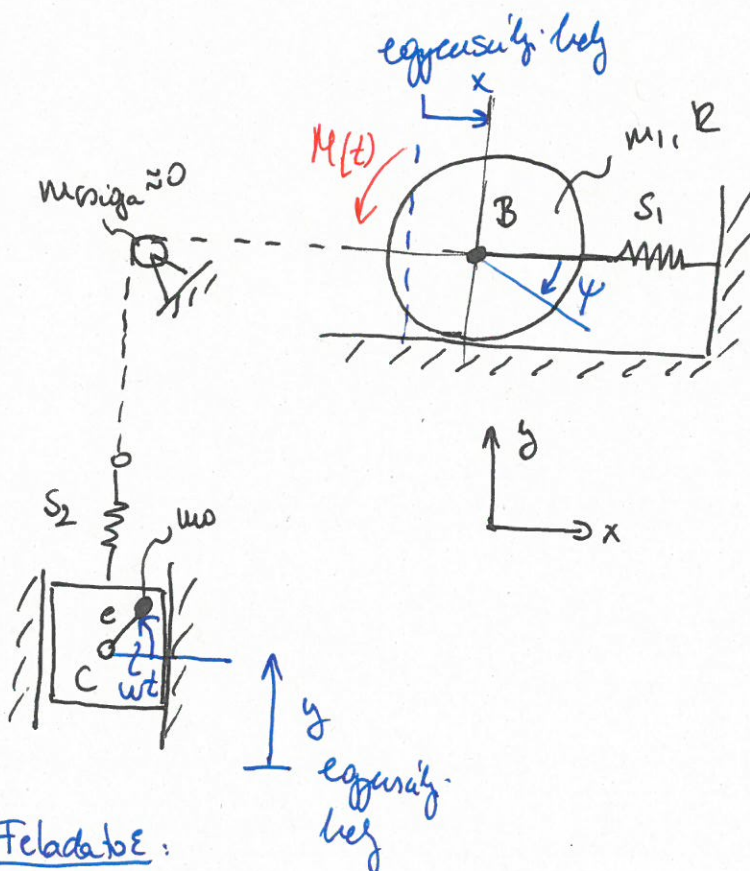 egyensúly. hely
x
M(t)
m1, R
mcsiga ≈0
B
S1
ψ
y
x
S2
m0
e
C
ωt
y
egyensúly.
hely
Feladatok: